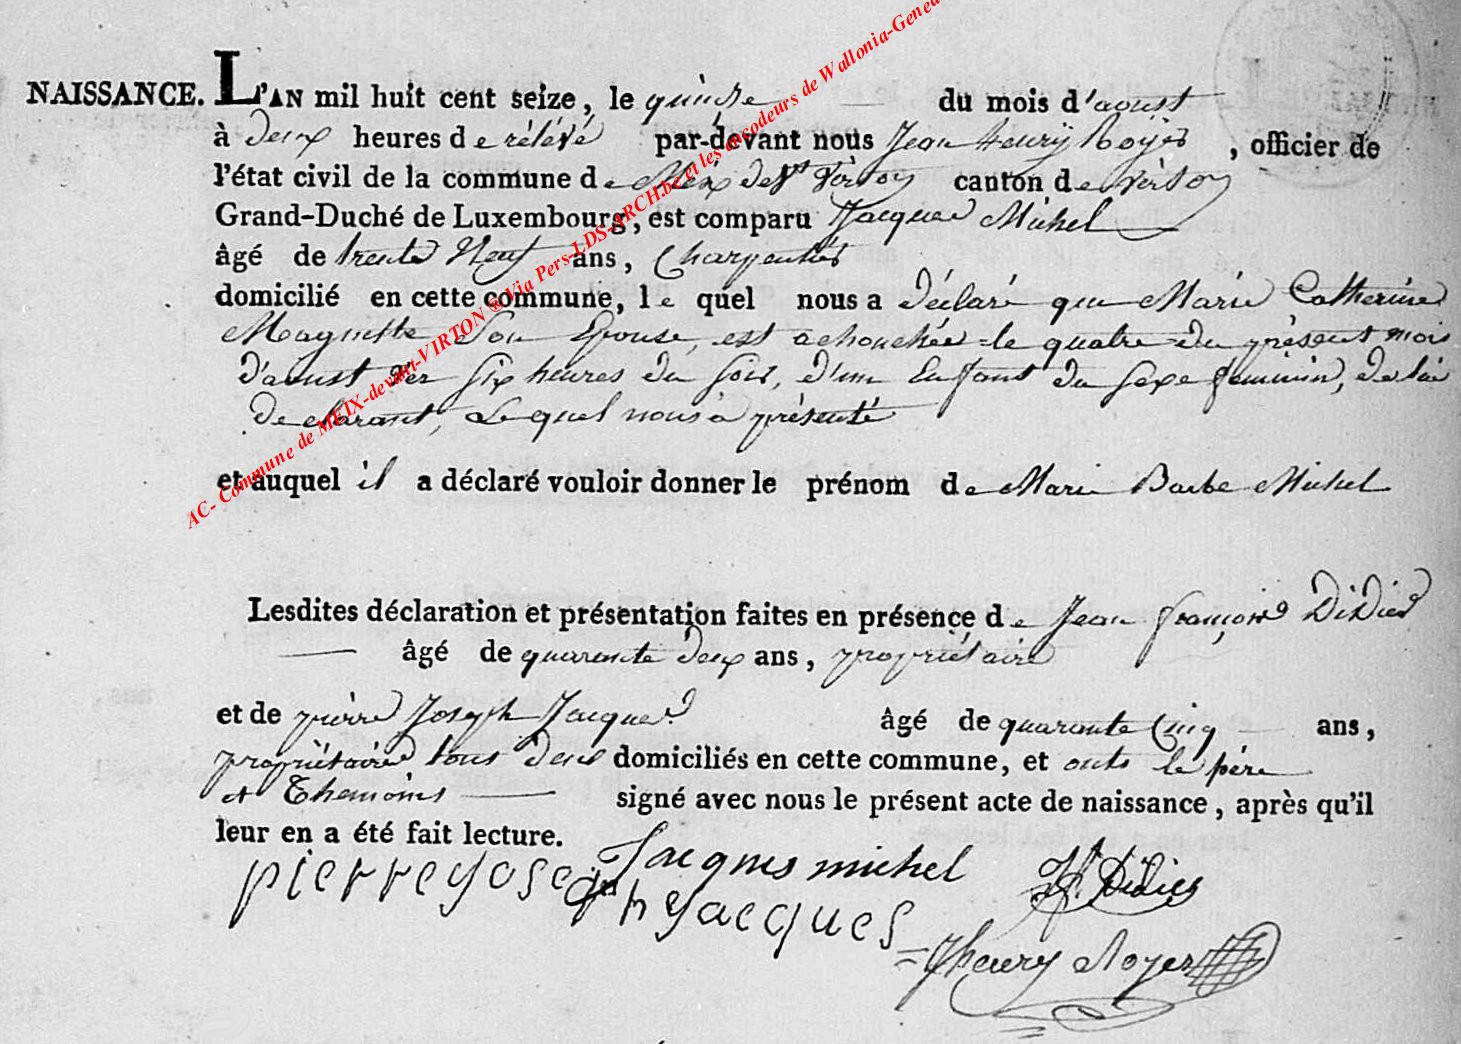 NAISSANCE. L'AN mil huit cent seize, le quinze du mois d'aoust
à deux heures de rélévé par-devant nous Jean henry Royer, officier de
l'état civil de la commune de Meix dvt Virton canton de virton
Grand-Duché de Luxembourg, est comparu Jacques Michel
âgé de trente Neuf ans, Charpentier
domicilié en cette commune, le quel nous a déclaré que Marie Catherine
Magnette Son Epouse, est achouchée le quatre du présent mois
d'aoust ver Six heures du Soir, d'un Enfant du Sexe feminin, de lui
declarant, Lequel nous à présenté
et auquel il a déclaré vouloir donner le prénom de Marie Barbe Michel
Lesdites déclaration et présentation faites en présence de Jean françois DiDier
âgé de quarante deux ans, propriétaire
et de pierre Joseph Jacques âgé de quarante Cinq ans,
propriétaire tous deux domiciliés en cette commune, et onts le père
et Themoins signé avec nous le présent acte de naissance, après qu'il
leur en a été fait lecture.
Jacques michel
pierre yoseph yacques
Jf. Didier
Jhenry Royer
AC- Commune de MEIX-devant-VIRTON ® Via Pers-LDS-ARCH.be et les encodeurs de Wallonia-Genea